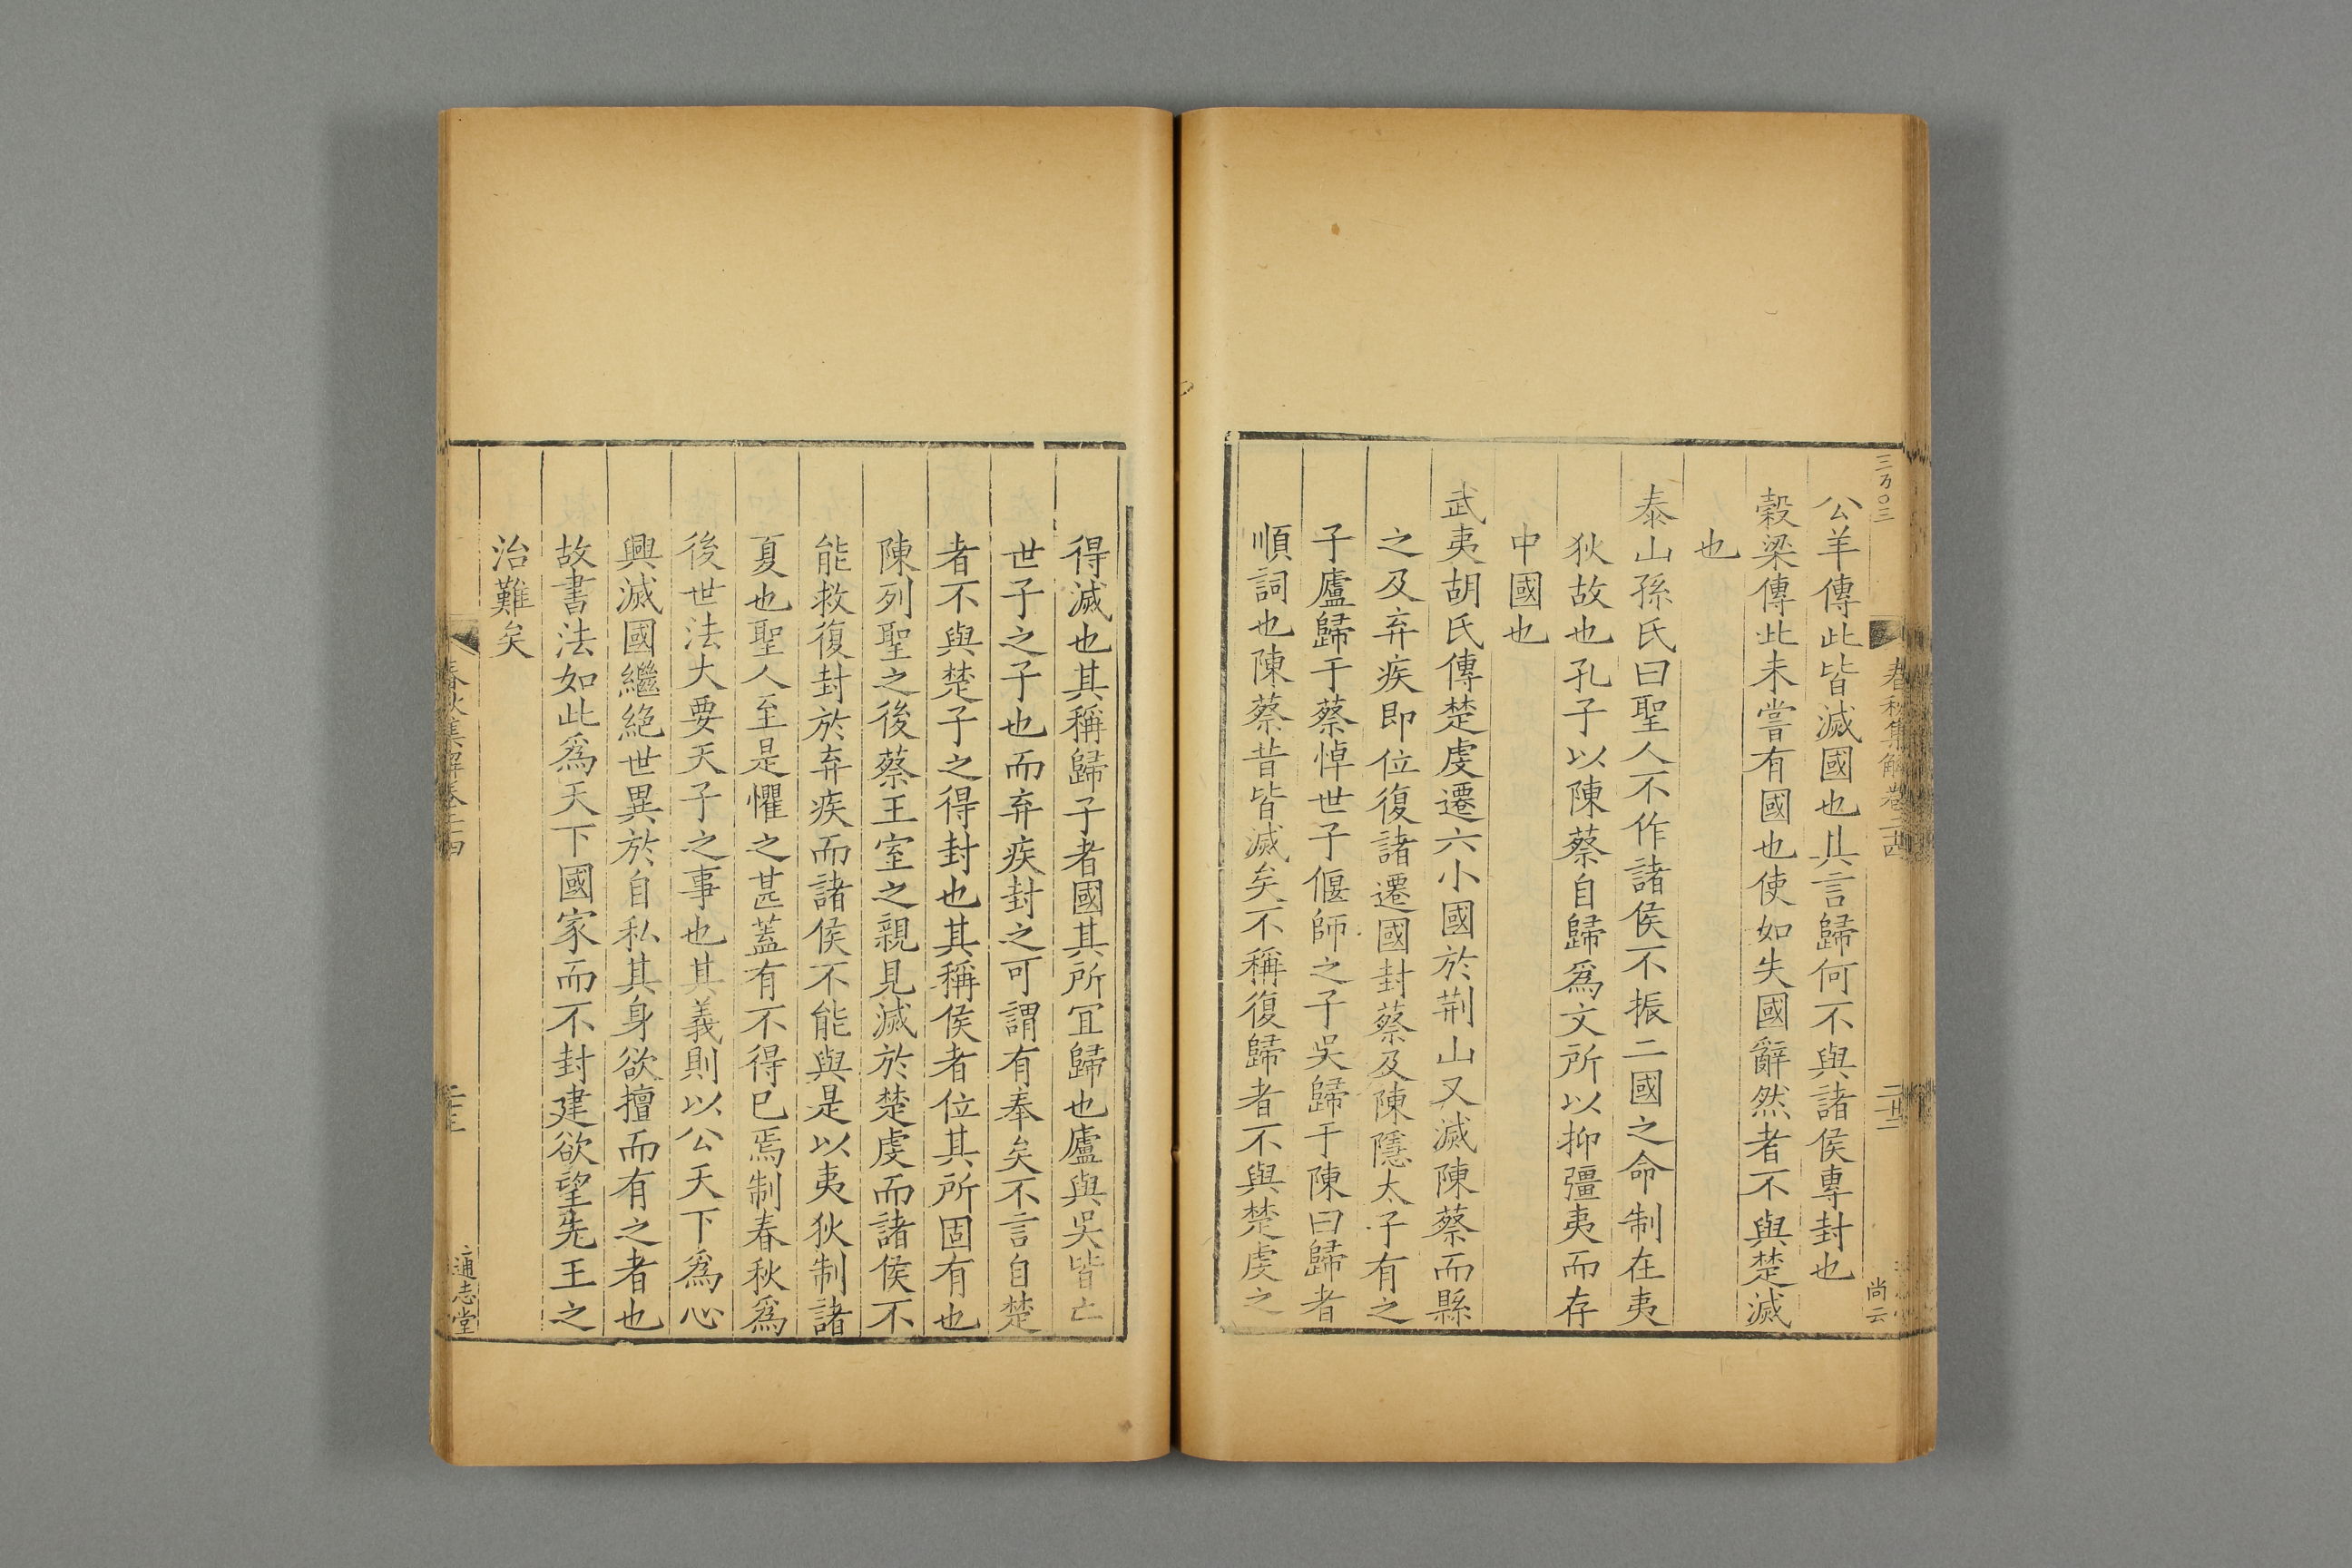 三万〇三
春秋集解卷二十四
尚云
公羊傳此皆滅國也其言歸何不與諸侯專封也
穀梁傳此未嘗有國也使如失國辭然者不與楚滅
也
泰山孫氏曰聖人不作諸侯不振二國之命制在夷
狄故也孔子以陳蔡自歸爲文所以抑彊夷而存
中國也
武夷胡氏傳楚虔遷六小國於荆山又滅陳蔡而縣
之及弃疾即位復諸遷國封蔡及陳隱太子有之
子廬歸于蔡悼世子偃師之子吳歸于陳曰歸者
順詞也陳蔡昔皆滅矣不稱復歸者不與楚虔之
得滅也其稱歸子者國其所冝歸也廬與吳皆亡
世子之子也而弃疾封之可謂有奉矣不言自楚
者不與楚子之得封也其稱侯者位其所固有也
陳列聖之後蔡王室之親見滅於楚虔而諸侯不
能救復封於弃疾而諸侯不能與是以夷狄制諸
夏也聖人至是懼之甚蓋有不得已焉制春秋爲
後世法大要天子之事也其義則以公天下爲心
興滅國繼絶世異於自私其身欲擅而有之者也
故書法如此爲天下國家而不封建欲望先王之
治難矣
春秋集解卷二十四
通志堂